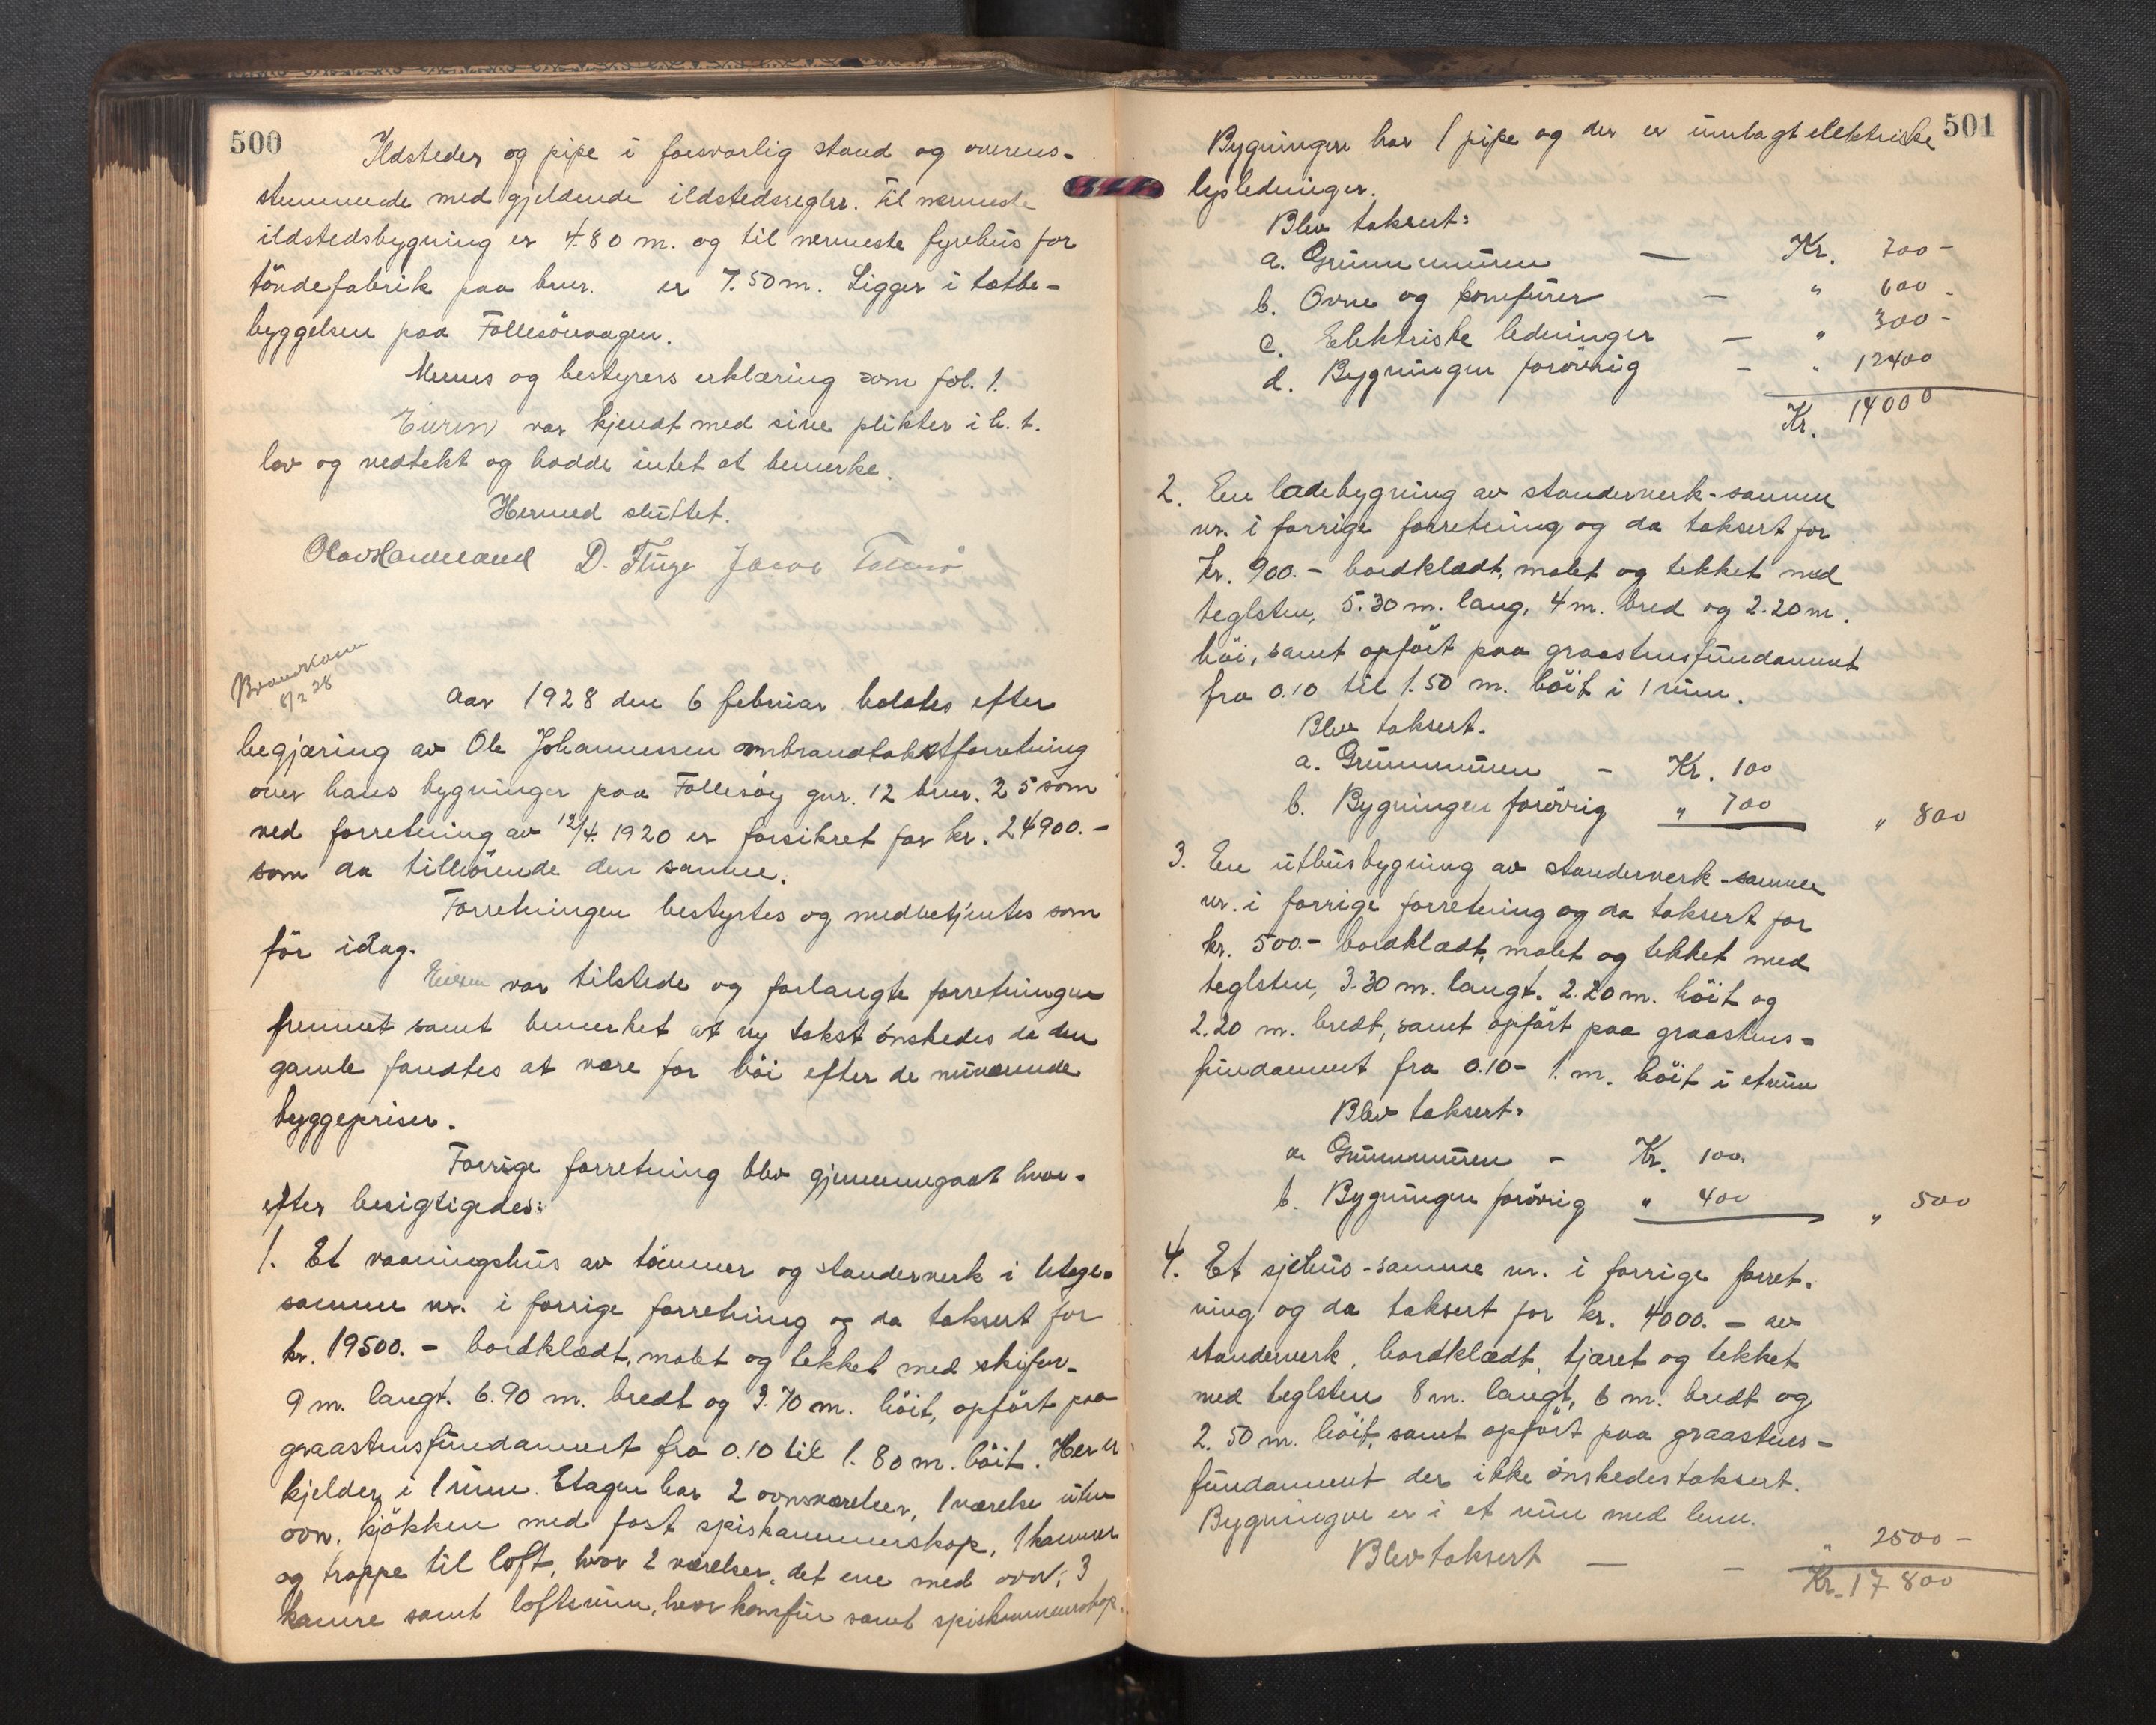 500
Ildsteder og pipe i forsvarlig stand og overens-
stemmende med gjeldende ildstedsregler. Til nærmeste
ildstedsbygning er 4.80 m. og til nærmeste fyrehus for
töndefabrik paa brnr. er 7.50 m. Ligger i tætbe-
byggelsen paa Follesövaagen.
Mens og bestyrers erklæring som fol. 1.
Eieren var kjendt med sine plikter i h. t.
lov og vedtekt og hadde intet at bemerke.
Hermed sluttet.
Olav D. Fluge Jacob
Brandkassen
8/2 28
Aar 1928 den 6 februar holdtes efter
begjæring av Ole Johannessen ombrandtakstforretning
over hans bygninger paa Follesöy gnr. 12 brnr. 25 som
ved forretning av 12/4. 1920 er forsikret for kr. 24900.-
som da tilhörende den samme.
Forretningen bestyrtes og medbetjentes som
för idag.
Eieren var tilstede og forlangte forretningen
fremmet samt bemerket at ny takst önskedes da den
gamle fandtes at være for höi efter de nuværende
byggepriser.
Forrige forretning blev gjennemgaat hvor-
efter besigtigedes:
1. Et vaaningshus av tömmer og standerverk i 1 etage-
samme nr. i forrige forretning og da taksert for
kr. 19500.- bordklædt, malet og tekket med skifer-
9 m. langt. 6.90 m. bredt og 3.70 m. höit, opfört paa
graastensfundament fra 0.10 til 1.80 m. höit. Her er
kjelder i 1 rum. Etagen har 2 ovnsværelser, 1 værelse uten
ovn, kjökken med fast spiskammerskap, 1 kammer
og trappe til loft, hvor 2 værelser, det ene med ovn, 3
kamre samt loftsrum, hvor komfur samt spiskammerskap.
501
Bygningen har 1 pipe og der er innlagt elektriske
lysledninger.
Blev taksert:
a. Grunnmuren — Kr. 700-
b. Ovne og komfurer — " 600-
c. Elektriske ledninger — " 300-
d. Bygningen forövrig - " 12400
Kr. 14000
2. En ladebygning av standerverk - samme
nr. i forrige forretning og da taksert for
kr. 900.- bordklædt, malet og tekket med
teglsten, 5.30 m. lang, 4 m. bred og 2.20 m.
höi, samt opfört paa graastensfundament
fra 0.10 til 1.50 m. höit i 1 rum.
Blev taksert.
a. Grunnmuren - Kr. 100
b. Bygningen forövrig " 700 " 800
3. En uthusbygning av standerverk - samme
nr. i forrige forretning og da taksert for
kr. 500.- bordklædt, malet og tekket med
teglsten, 3.30 m. langt. 2.20 m. höit og
2.20 m. bredt, samt opfört paa graastens-
fundament fra 0.10 - 1. m. höit i et rum
Blev taksert:
a. Grunnmuren - Kr. 100.
b. Bygningen forövrig " 400 " 500
4. Et sjöhus - samme nr. i forrige forret-
ning og da taksert for kr. 4000.- av
standerverk, bordklædt, tjæret og tekket
med teglsten 8 m. langt, 6 m. bredt og
2.50 m. höit, samt opfört paa graastens-
fundament der ikke önskedes taksert.
Bygningen er i et rum med lem.
Blev taksert — - " 2500-
Kr. 17800